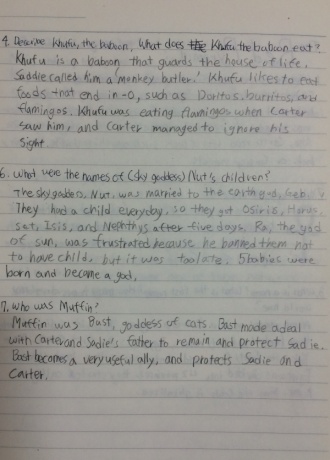 4. Describe Khufu, the baboon, What does Khufu the baboon eat?
Khufu is a baboon that guards the house of life.
Saddie called him a monkey butler.' Khufu likes to eat
foods that end in -O, such as Doritos, burritos, and
flamingos. Khufu was eating flamingos when Carter
saw him, and Carter managed to ignore his
sight
6. What were the names of (sky goddess) Nut's children?
The sky goddess, Nut, was married to the earth god, Geb.
They had a child everyday, so they got Osiris, Horus,
Set, Isis, and Nephthys after five days. Ra, the god
of sun, was frustrated because he banned them not
to have child, but it was too late. 5 babies were
born and became a god.
7. Who was Muffin?
Muffin was Bast, goddess of cats. Bast made a deal
with Carter and Sadie's father to remain and protect Sadie.
Bast becomes a very useful ally, and protects Sadie and
Carter.